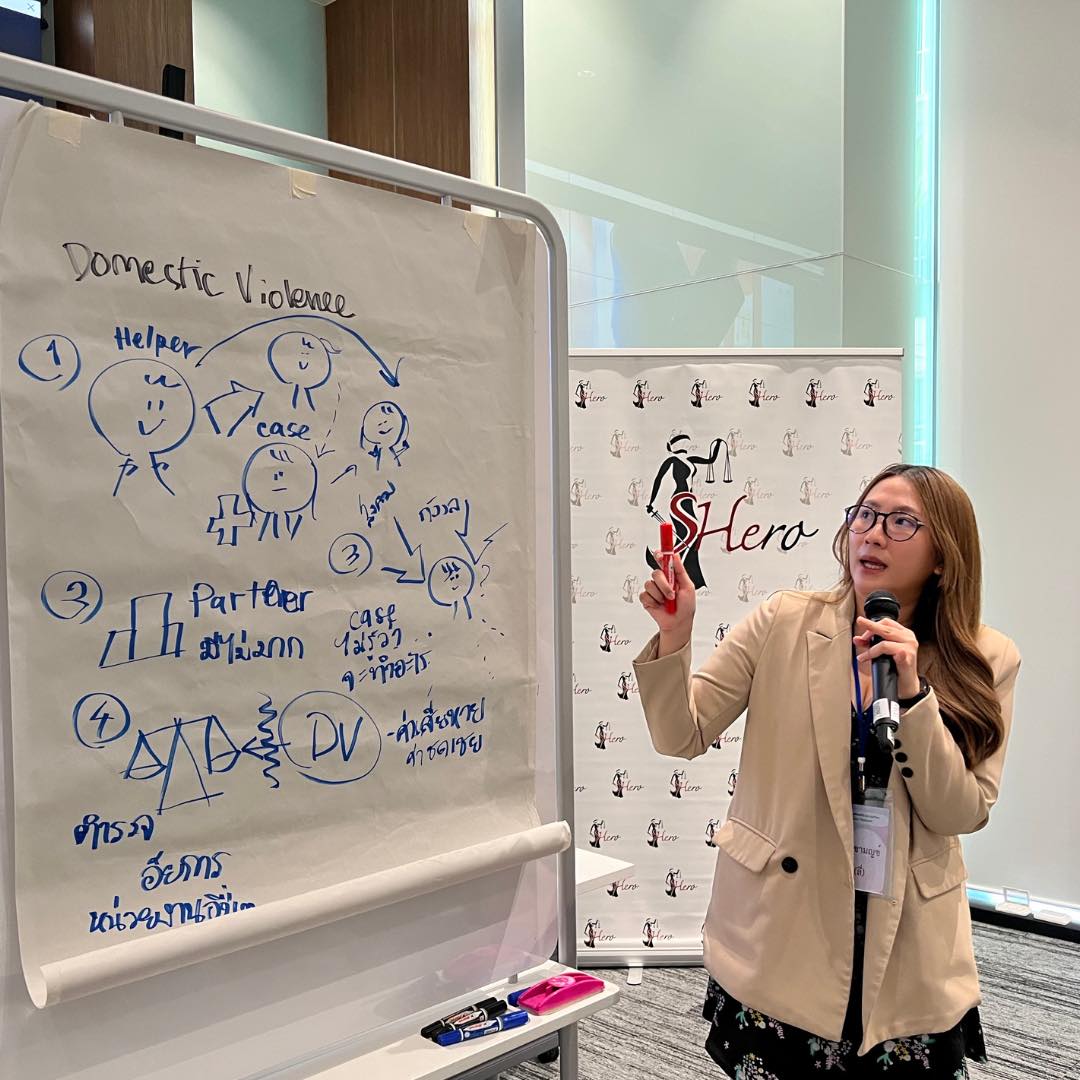 Domestic Violence
1
Helper
case
3
ไม่รู้ว่า
กังวล
2
Partner
มีไม่มาก
case
ไม่รู้ว่า
จะทำอะไร
4
DV
-ค่าเสียหาย
ค่าชดเชย
ตำรวจ
อัยการ
SHero